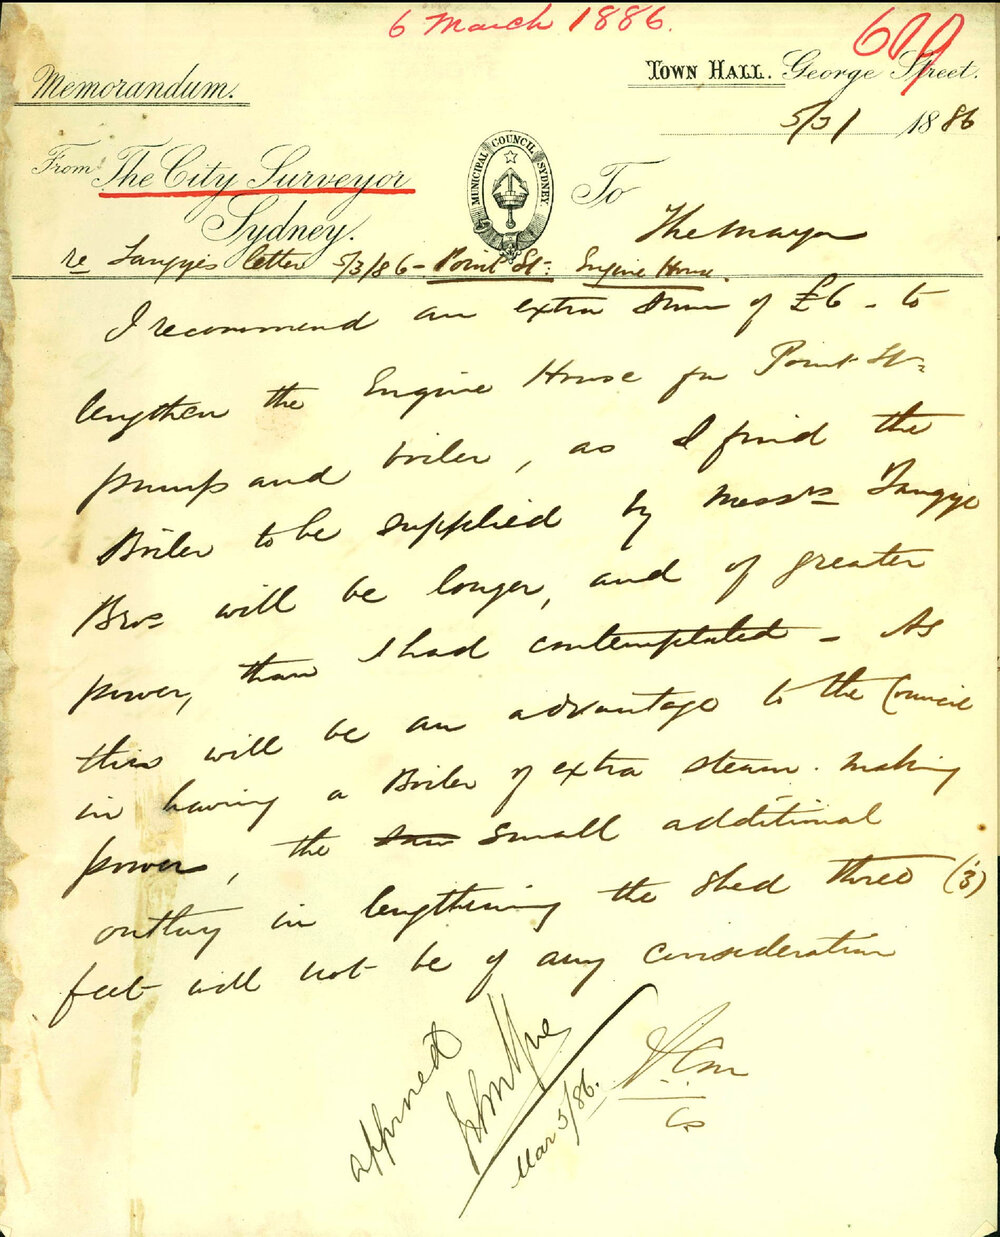 6 March 1886.
609
Memorandum.
TOWN HALL. George Street.
5/3/ 1886
From The City Surveyor
Sydney.
MUNICIPAL COUNCIL SYDNEY
To
The Mayor
re Tangyes letter 5/3/86 - Point St: Engine House.
I recommend an extra sum of £6 - to
lengthen the Engine House for Point St=
pump and boiler, as I find the
Boiler to be supplied by Messrs Tangye
Bros will be longer, and of greater
power, than I had contemplated - As
this will be an advantage to the Council
in having a Boiler of extra steam making
power, the small additional
outlay in lengthening the shed three (3)
feet will not be of any consideration
approved
Mar 5/86.
CS